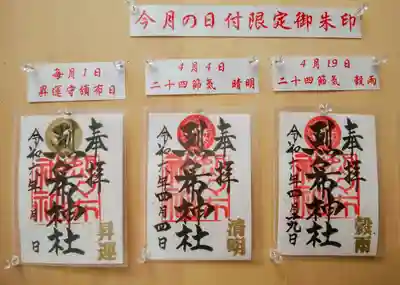 今月の日付限定御朱印
毎月1日
昇運守頒布日
4月4日
二十四節気 晴明
4月19日
二十四節気 穀雨
奉拝
神社
令和六年 月 日
昇運
奉拝
神社
令和六年四月四日
清明
奉拝
神社
令和六年四月十九日
穀雨